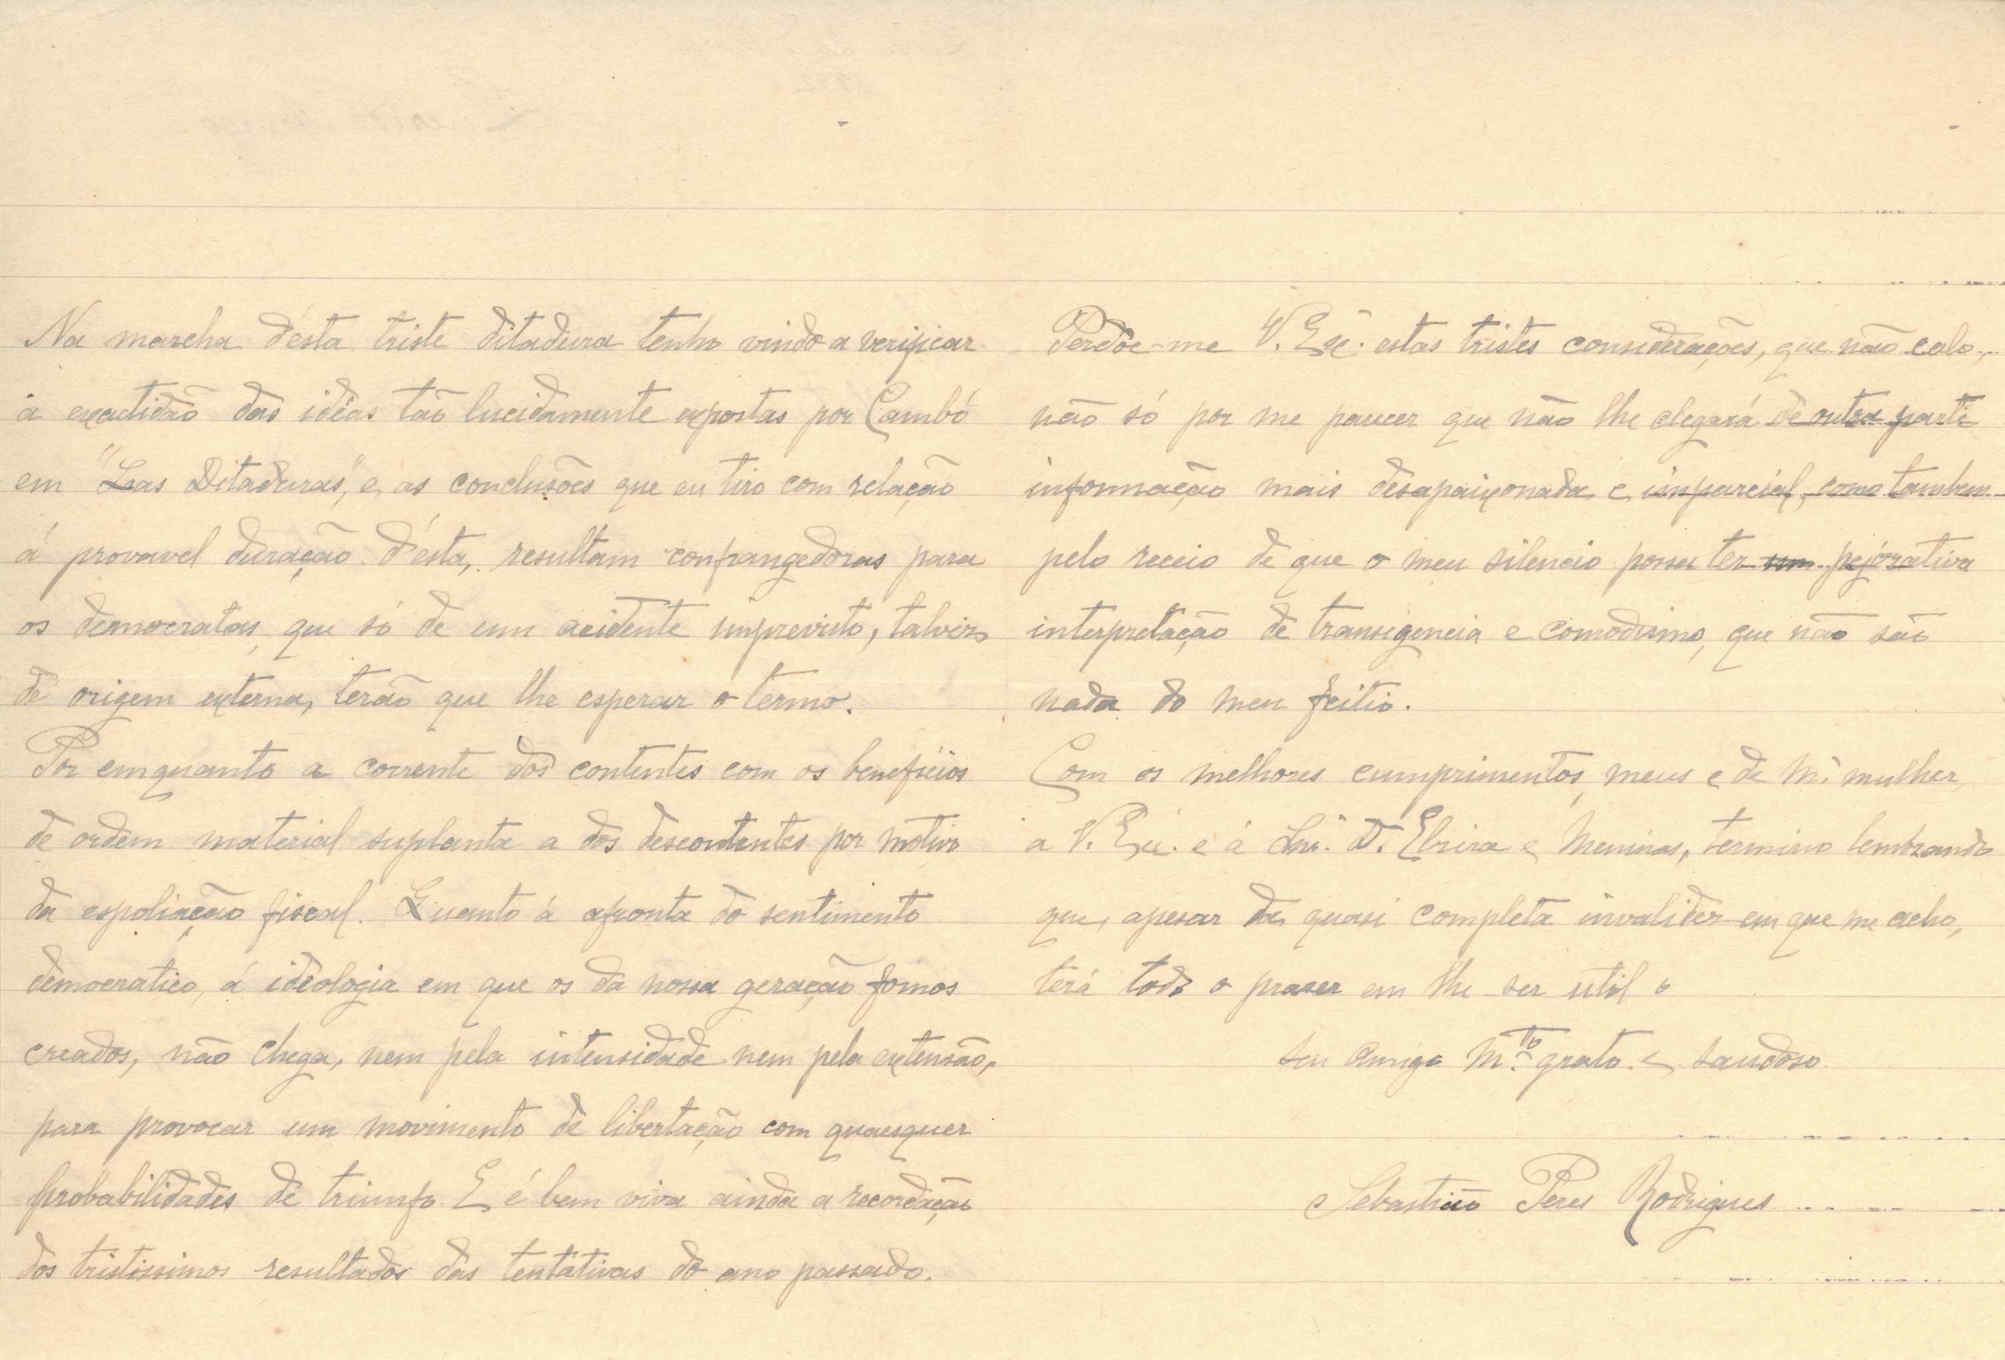 Na marcha d'ésta triste ditadura tenho vindo a verificar
a exactidão das idéas tão lucidamente expostas por Cambó
em "Las Ditaduras", e as conclusões que eu tiro com relação
á provavel duração d'ésta, resultam confrangedoras para
os democratas, que só de um acidente imprevisto, talvez
de origem externa, terão que lhe esperar o termo.
Por emquanto a corrente dos contentes com os benefícios
de ordem material suplanta a dos descontentes por motivo
da espoliação fiscal. Quanto á afronta do sentimento
democratico, á ideologia em que os da nossa geração fomos
creados, não chega, nem pela intensidade nem pela extensão,
para provocar um movimento de libertação com quaesquer
probabilidades de triumfo. E é bem viva ainda a recordação
dos tristissimos resultados das tentativas do ano passado.
Perdôe-me V. Exª. estas tristes considerações, que não calo,
não só por me parecer que não lhe chegará de outra parte
informação mais desapaixonada e imparcial, como tambem
pelo receio de que o meu silencio possa ter um pejorativa
interpretação de transigencia e comodismo, que não são
nada do meu feitio.
Com os melhores cumprimentos, meus e de mª mulher,
a V. Exª. e á Snrª. D. Elzira e Meninas, termino lembrando
que, apesar da quasi completa invalidez em que me acho,
terá todo o prazer em lhe ser util o
seu amigo m.to grato e saudoso
Sebastião Peres Rodrigues